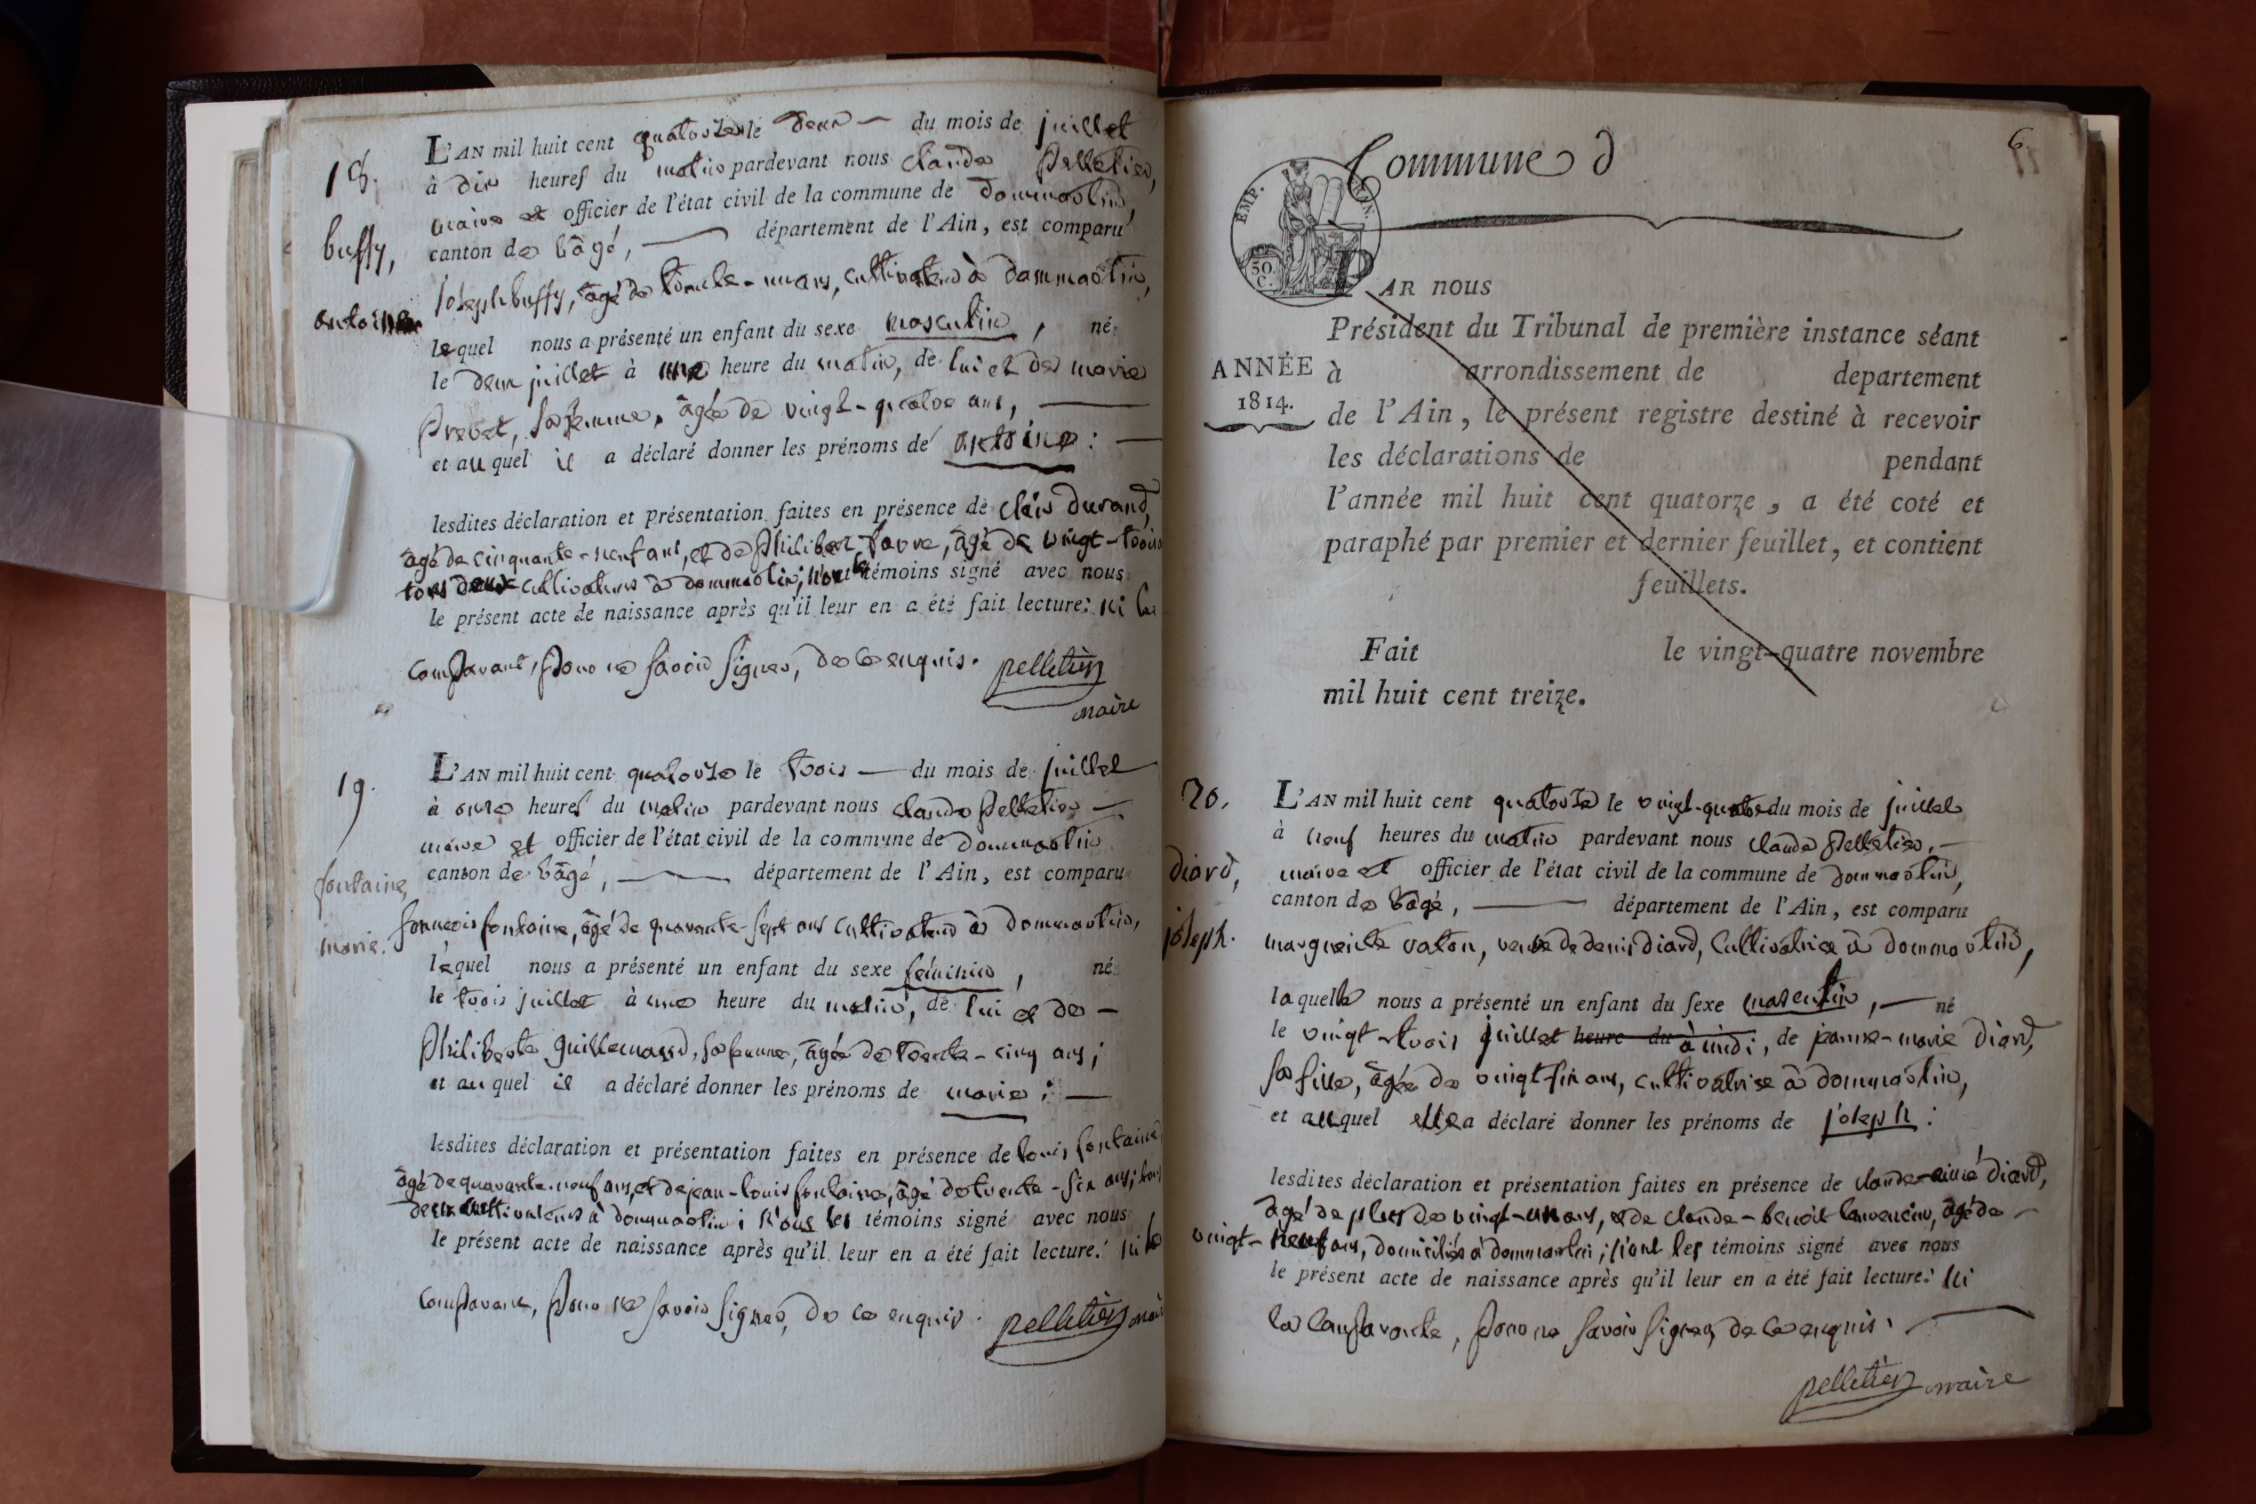 18.
buffy,
antoine
L'AN mil huit cent quatorze le deux du mois de juillet
à dix heures du matin pardevant nous claude Pelletier,
maire et officier de l'état civil de la commune de dommartin,
canton de bâgé, département de l'Ain, est comparu
joseph buffy, âgé de trente-un ans, cultivateur à dommartin,
lequel nous a présenté un enfant du sexe masculin, né
le deux juillet à une heure du matin, de lui et de marie
Prebet, sa femme, âgée de vingt-quatre ans,
et auquel il a déclaré donner les prénoms de antoine :
lesdites déclaration et présentation faites en présence de clair durand,
âgé de cinquante-neuf ans, et de philibert favre, âgé de vingt-trois
tous deux cultivateurs à dommartin; n'ont les témoins signé avec nous
le présent acte de naissance après qu'il leur en a été fait lecture: ni le
comparant, pour ne savoir signer, de ce enquis.
pelletier
maire
19.
fontaine,
marie.
L'AN mil huit cent quatorze le trois du mois de juillet
à onze heures du matin pardevant nous claude Pelletier
maire et officier de l'état civil de la commune de dommartin
canton de bâgé, département de l'Ain, est comparu
francois fontaine, âgé de quarante-sept ans cultivateur à dommartin,
lequel nous a présenté un enfant du sexe féminin, né
le trois juillet à une heure du matin, de lui et de
Philiberte guillemard, sa femme, âgée de trente-cinq ans;
et auquel il a déclaré donner les prénoms de marie :
lesdites déclaration et présentation faites en présence de louis fontaine
âgé de quarante-neuf ans, et de jean-louis fontaine, âgé de trente-six ans; tous
deux cultivateurs à dommartin; n'ont les témoins signé avec nous
le présent acte de naissance après qu'il leur en a été fait lecture: ni le
comparant, pour ne savoir signer, de ce enquis.
pelletier maire
6
Commune d
EMP.
50
C.
PAR nous
Président du Tribunal de première instance séant
ANNÉE
1814.
à arrondissement de departement
de l'Ain, le présent registre destiné à recevoir
les déclarations de pendant
l'année mil huit cent quatorze, a été coté et
paraphé par premier et dernier feuillet, et contient
feuillets.
Fait le vingt-quatre novembre
mil huit cent treize.
20.
diard,
joseph.
L'AN mil huit cent quatorze le vingt-quatre du mois de juillet
à neuf heures du matin pardevant nous claude Pelletier,
maire et officier de l'état civil de la commune de dommartin,
canton de bâgé, département de l'Ain, est comparu
margueritte vaton, veuve de denis diard, cultivatrice à dommartin,
laquelle nous a présenté un enfant du sexe masculin, né
le vingt-trois juillet heure du à midi, de jeanne-marie diard,
sa fille, âgée de vingt six ans, cultivatrice à dommartin,
et auquel elle a déclaré donner les prénoms de joseph :
lesdites déclaration et présentation faites en présence de claude-aimé diard,
âgé de plus de vingt-un ans, et de claude-benoit âgé de
vingt-neuf ans, domiciliés à dommartin; n'ont les témoins signé avec nous
le présent acte de naissance après qu'il leur en a été fait lecture: ni
la comparante, pour ne savoir signer, de ce enquis.
pelletier maire